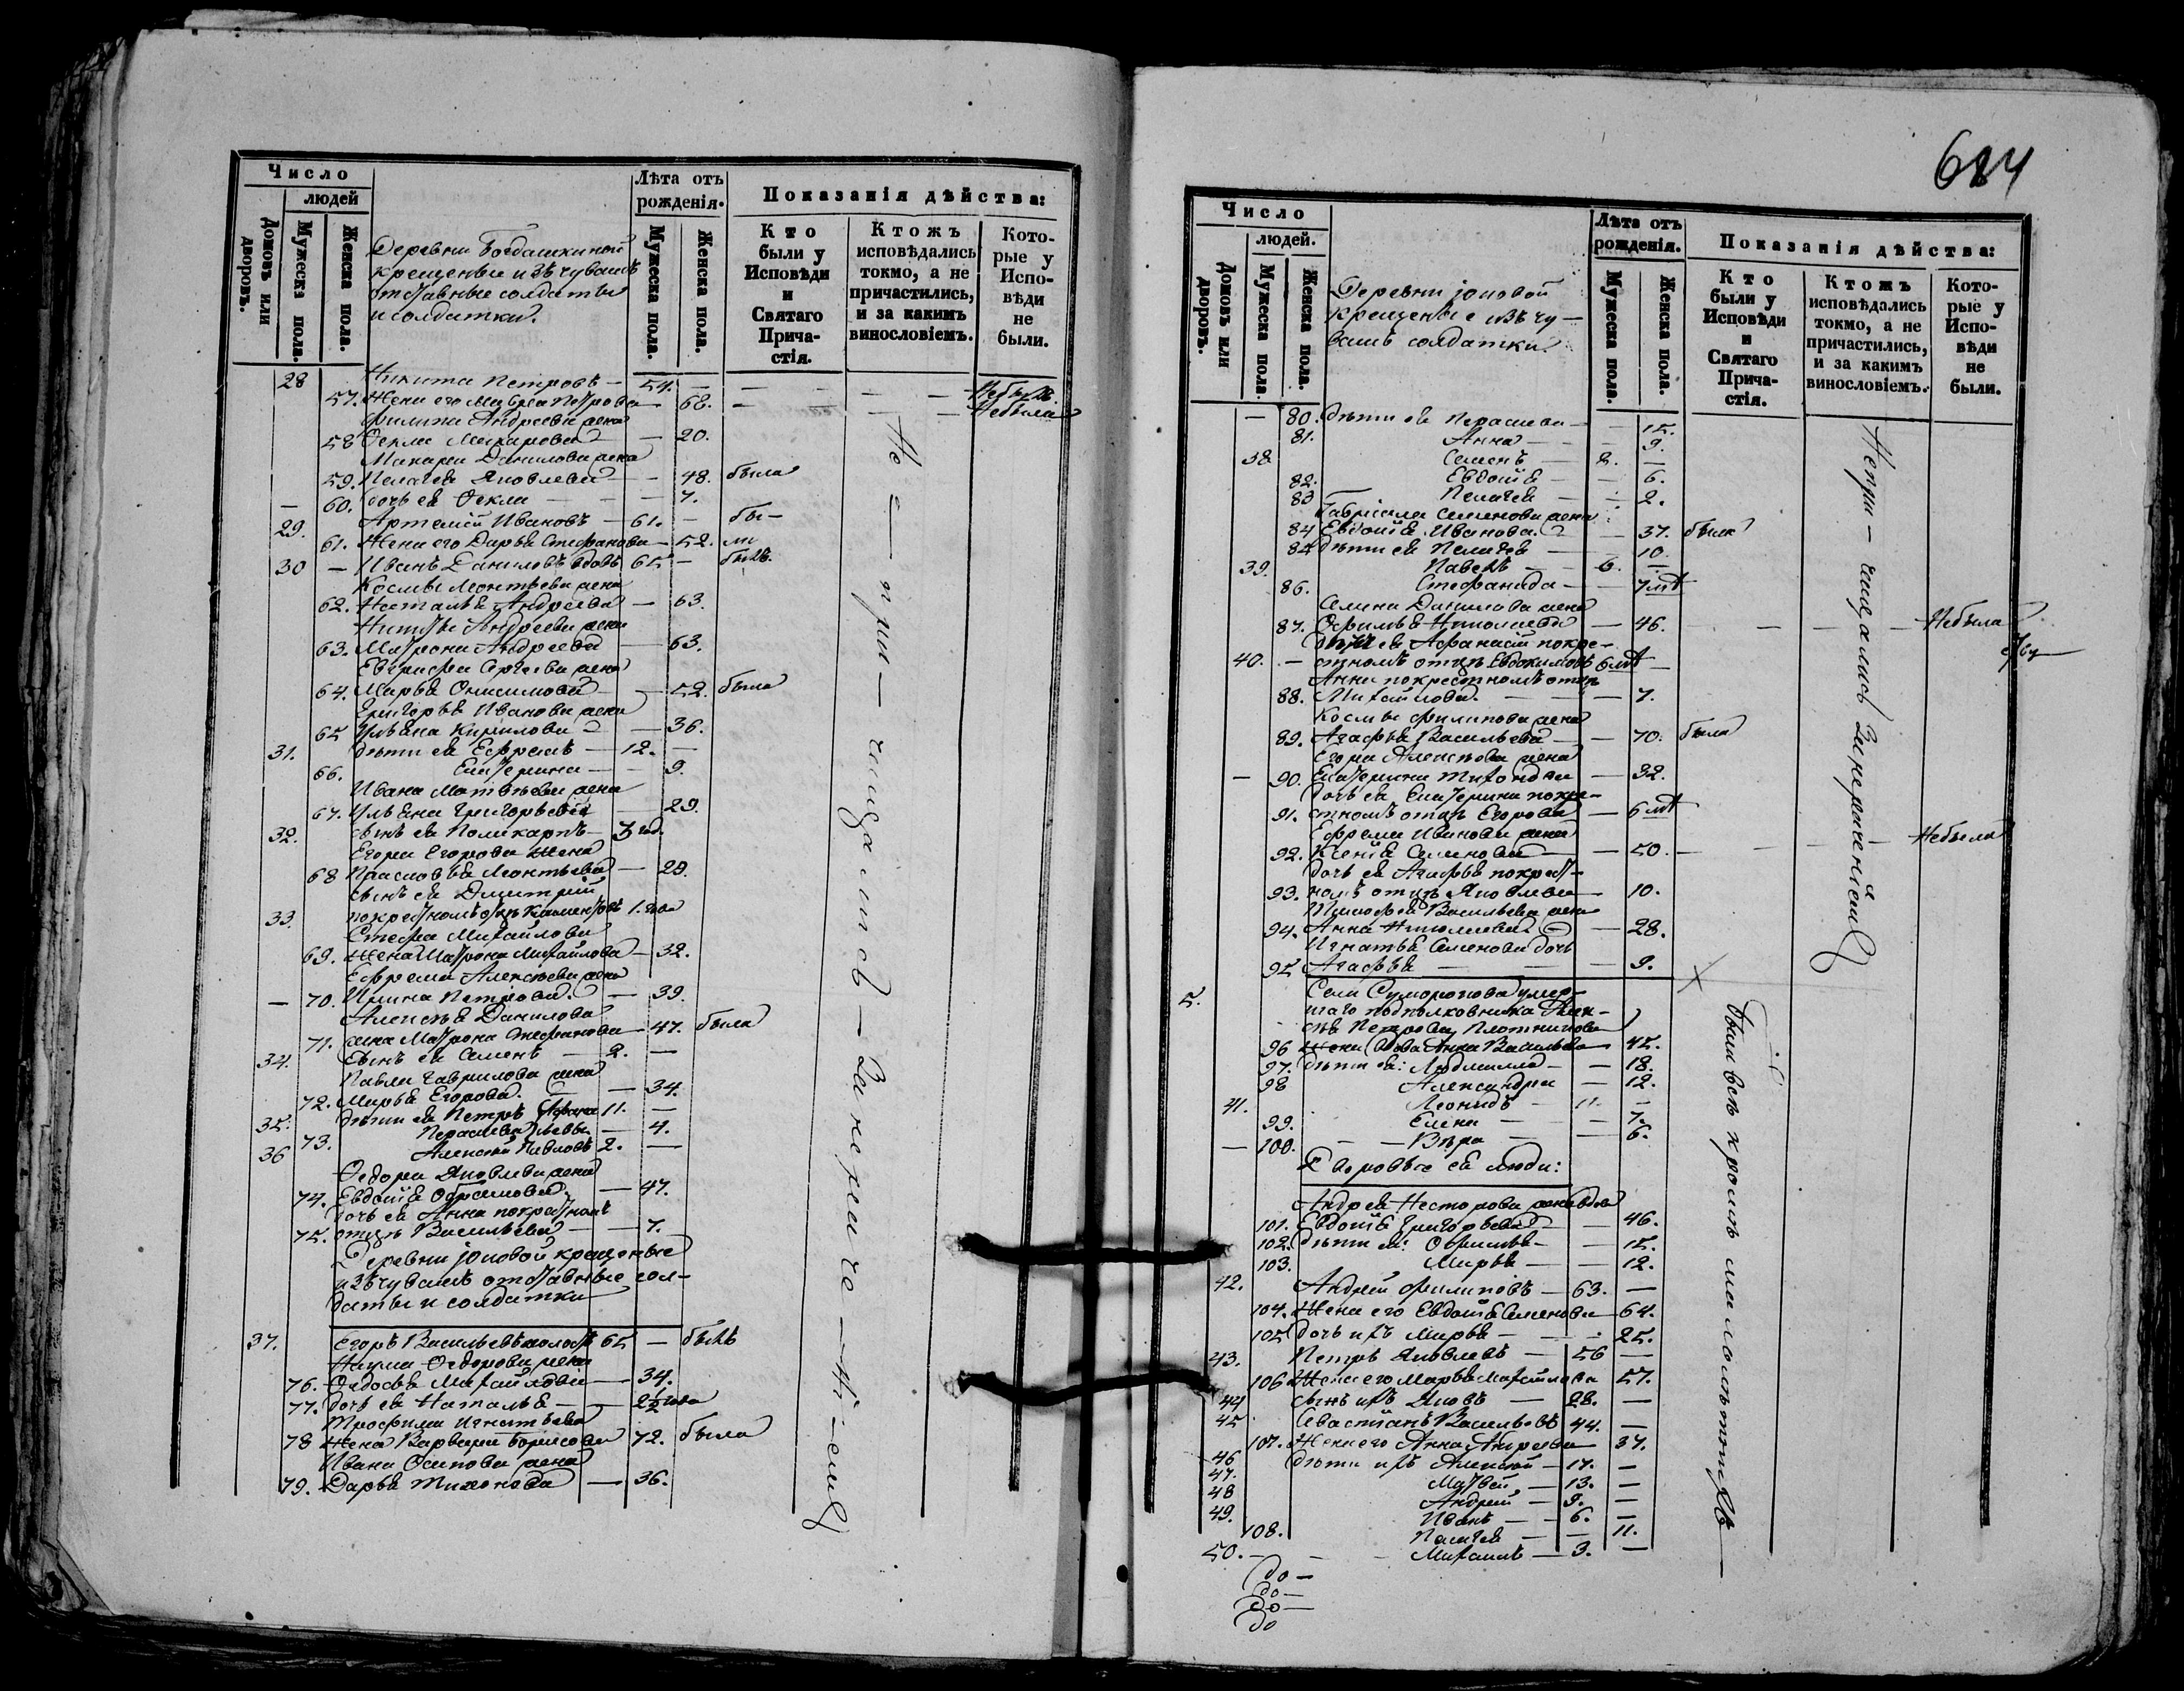 Число
людей
Домовъ или дворовъ.
Мужеска пола.
Женска пола.
Деревни Богдашкиной
крещеные изъ чувашъ
отставные солдаты
и солдатки.
Лѣта отъ
рожденія.
Мужеска пола.
Женска пола.
Показанія дѣйства:
Кто
были у
Исповѣди
и
Святаго
Прича-
стія.
Ктожъ
исповѣдались
токмо, а не
причастились,
и за какимъ
винословіемъ.
Кото-
рые у
Испо-
вѣди
не
были.
28 Никита Петровъ — 54. — Небылъ.
57. Жена его Марѳа Петрова 68. — Небыла
Филипа Андреева жена
58 Ѳекла Макарова — 20.
Макара Данилова жена
59. Пелагея Яковлева — 48. была
— 60. дочь ея Ѳекла — 7.
29. Артемій Ивановъ — 61. — бы-
61. Жена его Дарья Стефанова — 52. ли
30 — Иванъ Даниловъ вдовъ 65 — былъ.
Космы Леонтьева жена
62. Наталья Андреева — 63.
Никиты Андреева жена
63. Матрона Андреева — 63.
Евграфа Сергеева жена
64. Марья Онисимова — 52. была
Григорья Иванова жена
65 Ульяна Кирилова — 36.
31. дѣти ея Ефремъ — 12. —
66. Екатерина — 9.
Ивана Матвѣева жена
67. Ульяна Григорьева — 29.
32. сынъ ея Поликарпъ — 3 год.
Егора Егорова жена
68 Прасковья Леонтьева — 29.
сынъ ея Димитрій
33. покрестномъ отцѣ 1. года
Стефа Михайлова
69. жена Матрона Михайлова — 32.
Ефрема Алексѣева жена
— 70. Ирина Петрова. — 39.
Алексѣя Данилова
71. жена Матрона Стефанова — 47. была
34. Сынъ ея Семенъ — 2. —
Павла Гаврилова жена
72. Марья Егорова. — 34.
35. дѣти ея Петръ 11. —
73. Параскева — 4.
36 Алексѣй Павловъ 2. —
Ѳедора Яковлева жена
74. Евдокія — 47.
дочь ея Анна покрестномъ
75. отцѣ Васильева — 7.
Деревни Іоновой крещеные
изъ чувашъ отставные сол-
даты и солдатки
37. Егоръ Васильевъ холостъ 65 — былъ
Наума Ѳедорова жена
76. Ѳедосья Михайлова — 34.
77. дочь ея Наталья — 2½ года
Трофима Игнатьева
78 жена Варвара Борисова 72. была
Ивана Осипова жена
79. Дарья Тихонова — 36.
Не — при — чащались — За нераче — ні — емъ
624
Число
людей.
Домовъ или дворовъ.
Мужеска пола
Женска пола.
Деревни Іоновой
крещеные изъ чу-
вашъ солдатки.
Лѣта отъ
рожденія.
Мужеска пола.
Женска пола.
Показанія дѣйства:
Кто
были у
Исповѣди
и
Святаго
Прича-
стія.
Ктожъ
исповѣдались
токмо, а не
причастились,
и за какимъ
винословіемъ.
Кото-
рые у
Испо-
вѣди
не
были.
— 80. дѣти ея Параскева — 15.
81. Анна — 9.
38 Семенъ — 2. —
82. Евдокія — 6.
83 Пелагея — 2.
Гавріила Семенова жена
84 Евдокія Иванова. — 37. была
84 дѣти ея Пелагея — 10.
39. Павелъ — 6. —
86. Стефанида — 7 лѣт
Семена Данилова жена
87. Офимья Николаева — 46. — Небыла
ея Афанасій покре-
40. — стномъ отцѣ Евдокимовъ 6 лѣт —
Анна покрестномъ отцѣ
88. Михайлова. — 7.
Космы Филипова жена
89. Агафья Васильева — 70. была
Егора Алексѣева жена
— 90. Екатерина Тихонова — 32.
дочь ея Екатерина покре-
91. стномъ отцѣ Егорова — 6 лѣт
Ефрема Иванова жена
92. Ксенія Семенова — 50. — Небыла
дочь ея Агафья покрест-
93. номъ отцѣ Яковлева — 10.
Тимофея Васильева жена
94. Анна Николаева — 28.
Игнатья Семенова дочь
95 Агафья — 9.
Непри — чащались За нераченіемъ
5. Села Суморокова умер-
шаго подполковника Алек-
сѣя Петрова Плотникова
96 жена вдова Анна Васильева 45.
97. дѣти ея: Людмилла — 18.
98 Александра — 12.
41. Леонидъ — 11. —
99. Елена — 7.
— 100. — Вѣра — 6.
Дворовые ея люди:
Андрея Нестерова жена вдова
101. Евдокія Григорьева — 46.
102. дѣти ея: Офимья — 15.
103. Марья — 12.
42. Андрей Филиповъ — 63. —
104. Жена его Евдокія Семенова — 64.
105 дочь ихъ Марья — 25.
43. Петръ Яковлевъ — 56 —
106 Жена его Марья Михайлова 57.
44 сынъ ихъ Яковъ — 28. —
45 Севастіанъ Васильевъ 44. —
107. Жена его Анна Андреева — 37.
46 дѣти ихъ Алексѣй — 17. —
47. Матвей — 13. —
48 Андрей — 9. —
49. Иванъ — 6. —
108. Пелагея — 11.
50. — Михаилъ — 3. —
были всѣ кромѣ малолѣтнихъ
до —
до —
до —
до